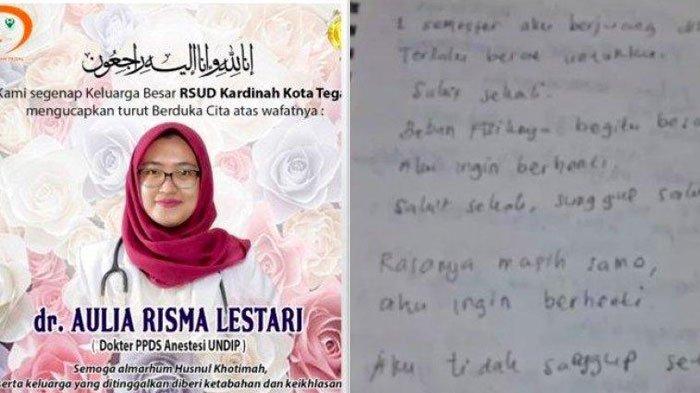 إنا لله وإنا إليه راجعون
Kami segenap Keluarga Besar RSUD Kardinah Kota Tega
mengucapkan turut Berduka Cita atas wafatnya :
dr. AULIA RISMA LESTARI
( Dokter PPDS Anestesi UNDIP )
Semoga almarhum Husnul Khotimah,
serta keluarga yang ditinggalkan diberi ketabahan dan keikhlasan
1 semester aku berjuang
Terlalu berat untukku.
Sakit sekali.
Beban fisiknya begitu
Aku ingin berhenti
Sakit sekali, sungguh
Rasanya masih sama,
aku ingin berhenti.
Aku tidak sanggup